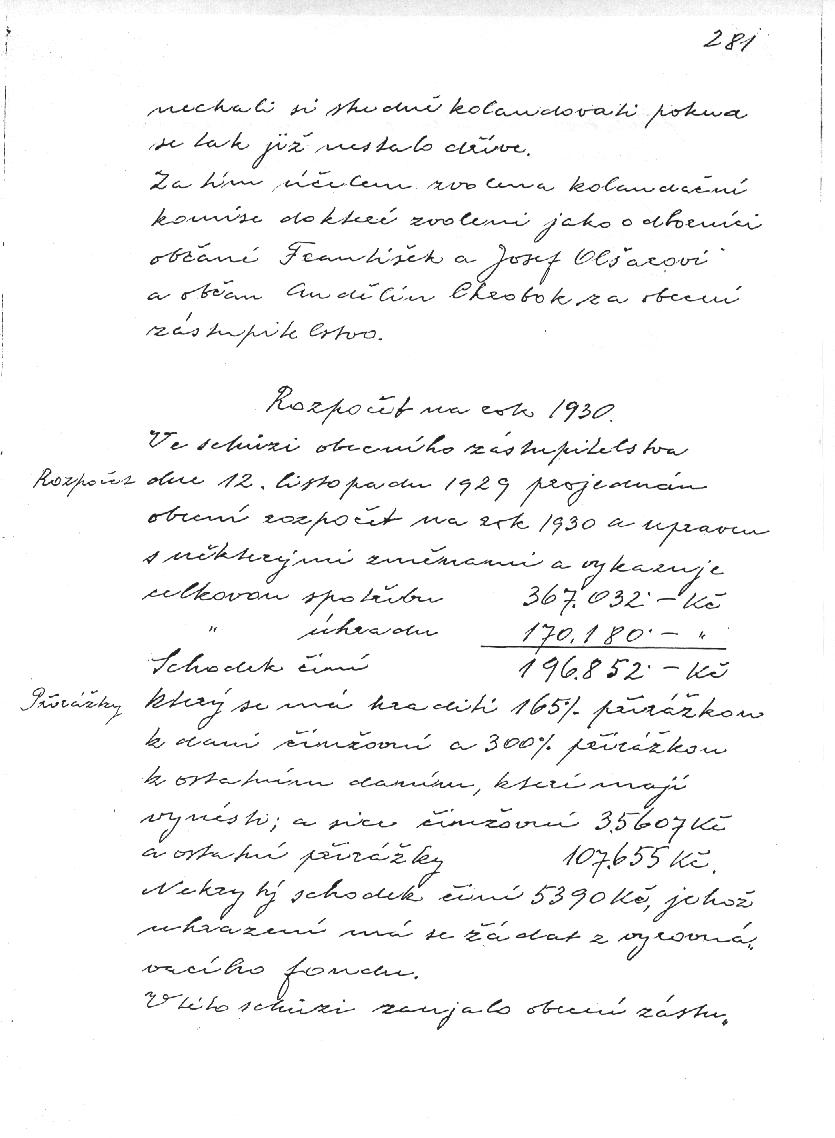 281
nechali si studně kolaudovati pokud
se tak již nestalo dříve.
Za tím účelem zvolena kolaudační
komise do které zvoleni jako odborníci
občané František a Josef Olšarovi
a občan Andělín Chrobok za obecní
zástupitelstvo.
Rozpočet na rok 1930.
Ve schůzi obecního zástupitelstva
Rozpočet dne 12. listopadu 1929 projednán
obecní rozpočet na rok 1930 a upraven
s některými změnami a vykazuje
celkovou spotřebu 367.032·– Kč
" úhradu 170.180·– "
Schodek činí 196.852·– Kč
Přirážky který se má hraditi 165% přirážkou
k dani činžovní a 300% přirážkou
k ostatním daním, které mají
vynésti; a sice činžovní 35607 Kč
a ostatní přirážky 107.655 Kč.
Nekrytý schodek činí 5390 Kč, jehož
uhrazení má se žádat z vyrovná„
vacího fondu.
V této schůzi zaujalo obecní zástu„